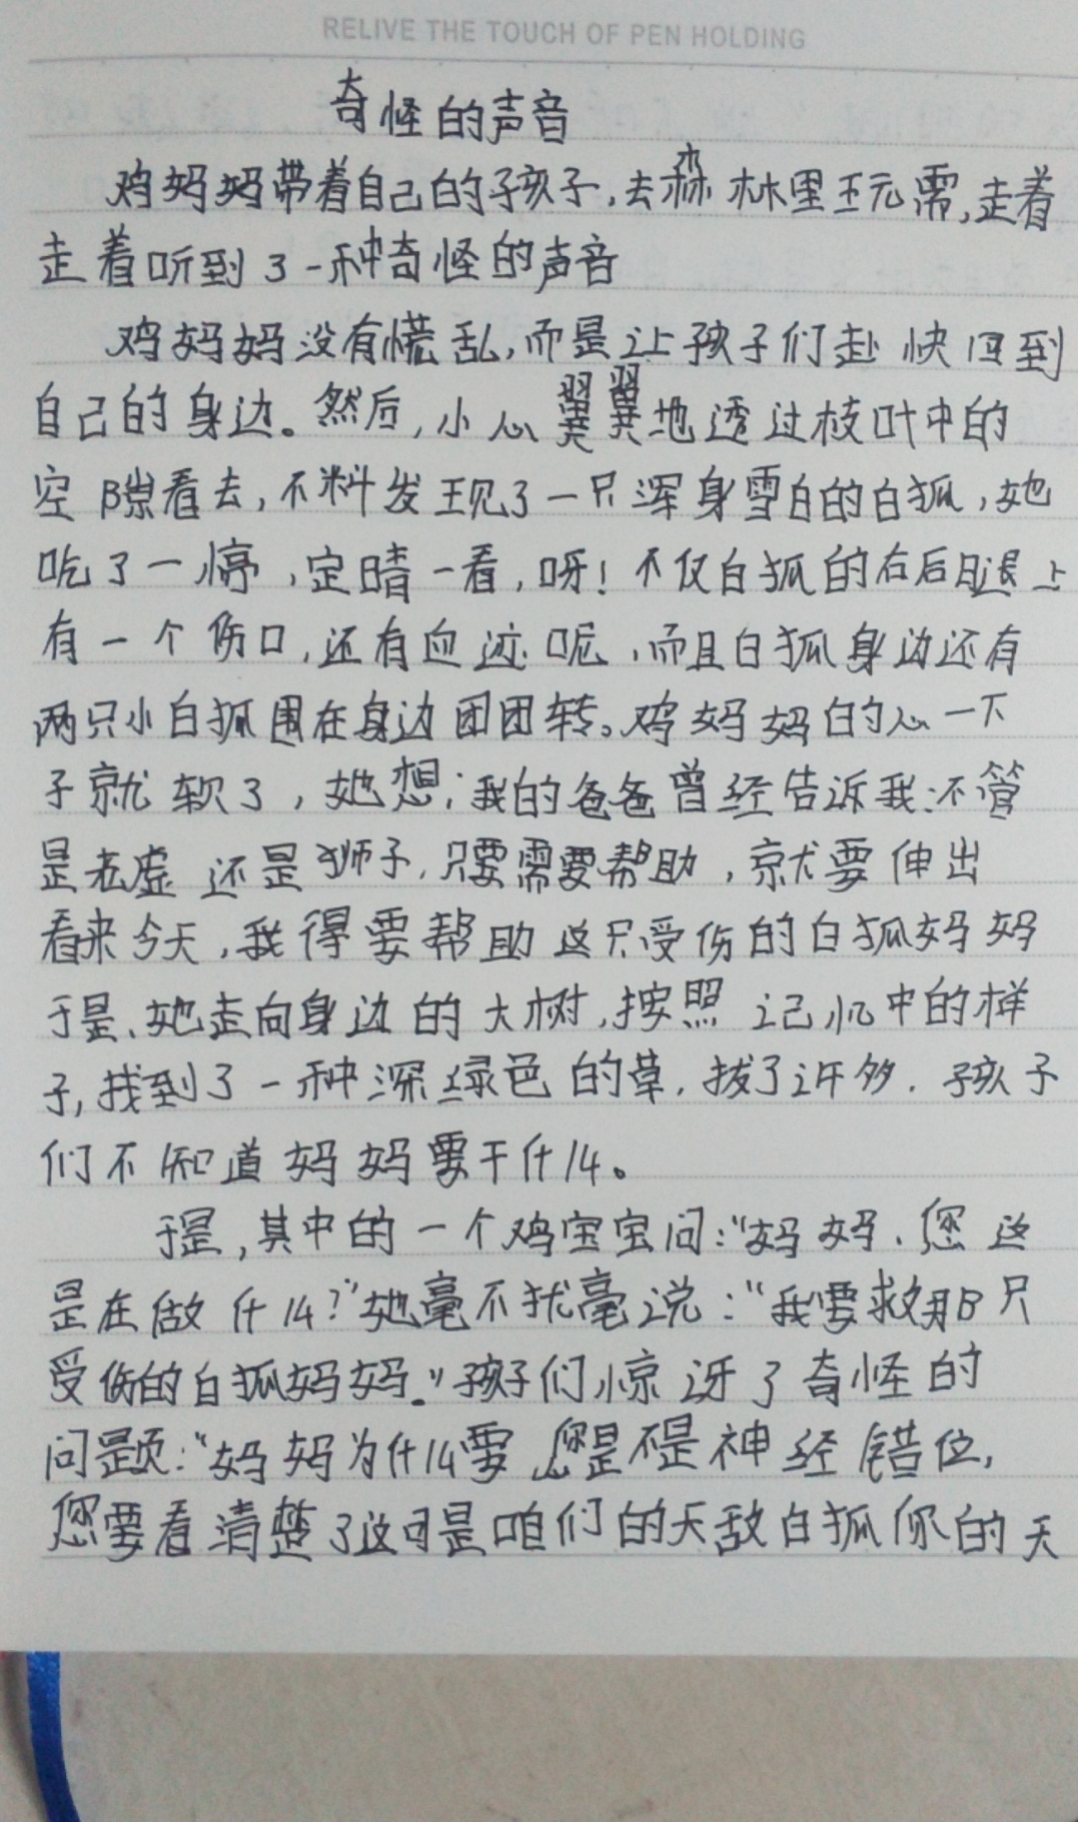 RELIVE THE TOUCH OF PEN HOLDING
奇怪的声音
鸡妈妈带着自己的孩子,去森林里玩需,走着
走着听到了一种奇怪的声音
鸡妈妈没有慌乱,而是让孩子们赴快回到
自己的身边。然后,小心翼翼地透过枝叶中的
空隙看去,不料发现了一只浑身雪白的白狐,她
吃了一惊,定睛一看,呀!不仅白狐的右后腿上
有一个伤口,还有血迹呢,而且白狐身边还有
两只小白狐围在身边团团转。鸡妈妈的心一下
子就软了,她想:我的爸爸曾经告诉我:不管
是老虎还是狮子,只要需要帮助,就要伸出
看来今天,我得要帮助这只受伤的白狐妈妈
于是、她走向身边的大树,按照记忆中的样
子,找到了一种深绿色的草,拔了许多.孩子
们不知道妈妈要干什么。
于是,其中的一个鸡宝宝问:“妈妈、您这
是在做什么?”她毫不犹毫说:“我要救那只
受伤的白狐妈妈。”孩子们惊讶了奇怪的
问题:“妈妈为什么要 您是不是神经错位,
您要看清楚了这可是咱们的天敌白狐你的天